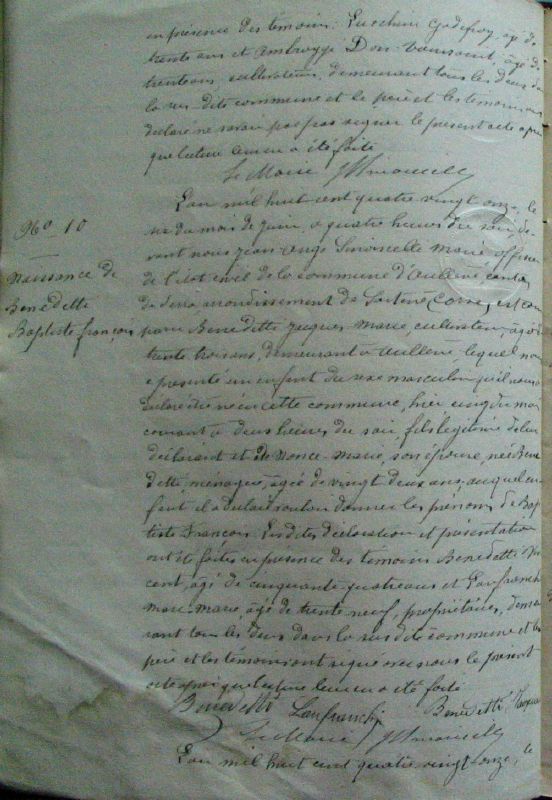 en présence des témoins: Lucchini Godefroy, agé de
trente ans et Ambroggi Don-
trente ans cultivateurs, demeurant tous les deux dans
la sus-dite commune et le père et les témoins ont
déclaré ne savoir pas signer le présent acte après
que lecture leur en a été faite
Le Maire JASimoncelli
L'an mil huit cent quatre vingt onze, le
six du mois de juin, à quatre heures du soir, de-
vant nous Jean-Ange Simoncelli maire officier
de l'état civil de la commune d'Aullene canton
de Serra arrondissement de Sartène Corse, est com
paru Benedetti Jacques Marie, cultivateur, âgé de
trente trois ans, demeurant à Aullene, lequel nous
a présenté un enfant du sexe masculin qu'il nous a
déclaré être né en cette commune, hier cinq du mois
courant à deux heures du soir, fils légitime de lui
déclarant et de Nonce-Marie, son épouse, née Bene
detti menagère, agée de vingt deux ans, auquel en
fant il a declaré vouloir donner les prénoms de Bap
tiste François. Les dites déclaration et présentation
ont été faites en présence des témoins Benedetti Vin
cent, âgé de cinquante quatre ans et Lanfranchi
Marc-Marie, âgé de trente neuf, propriétaires, demeu
rant tous les deux dans la sus dite commune et les
père et les témoins ont signé avec nous le présent
acte après que lecture leur en a été faite
Benedetti Lanfranchi Benedetti Jacques
Le Maire JASimoncelli
L'an mil huit cent quatre vingt-onze, le
No 10
Naissance de
Benedetti
Baptiste François